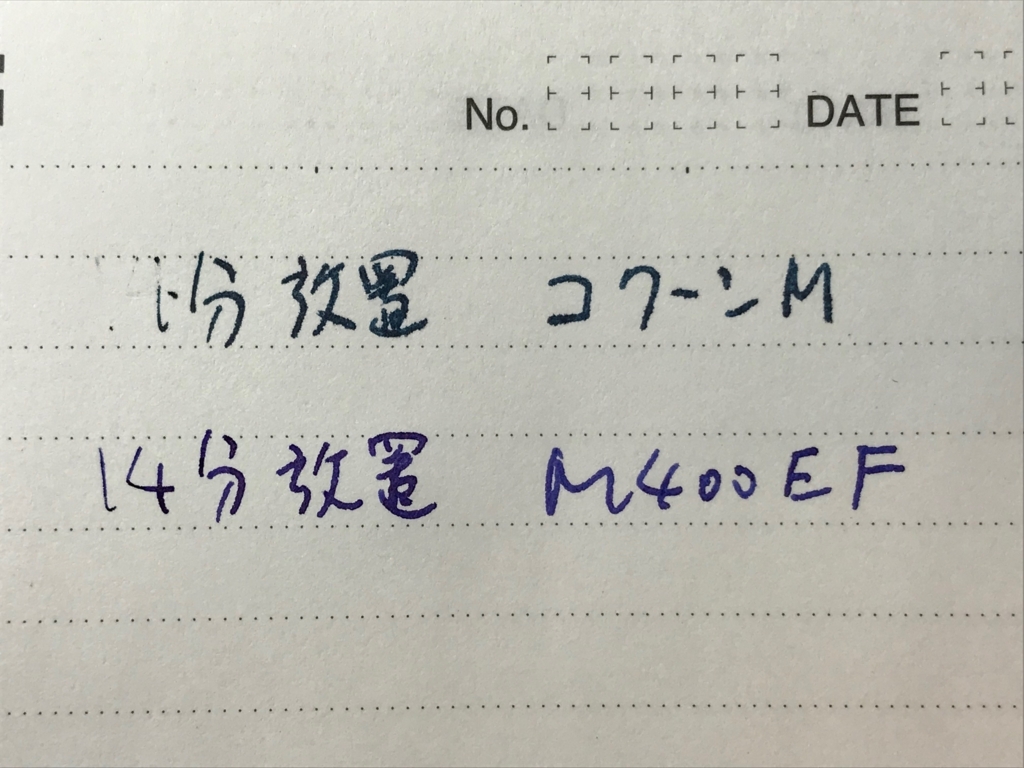 No. DATE
分放置 コクーンM
14分放置 M400EF